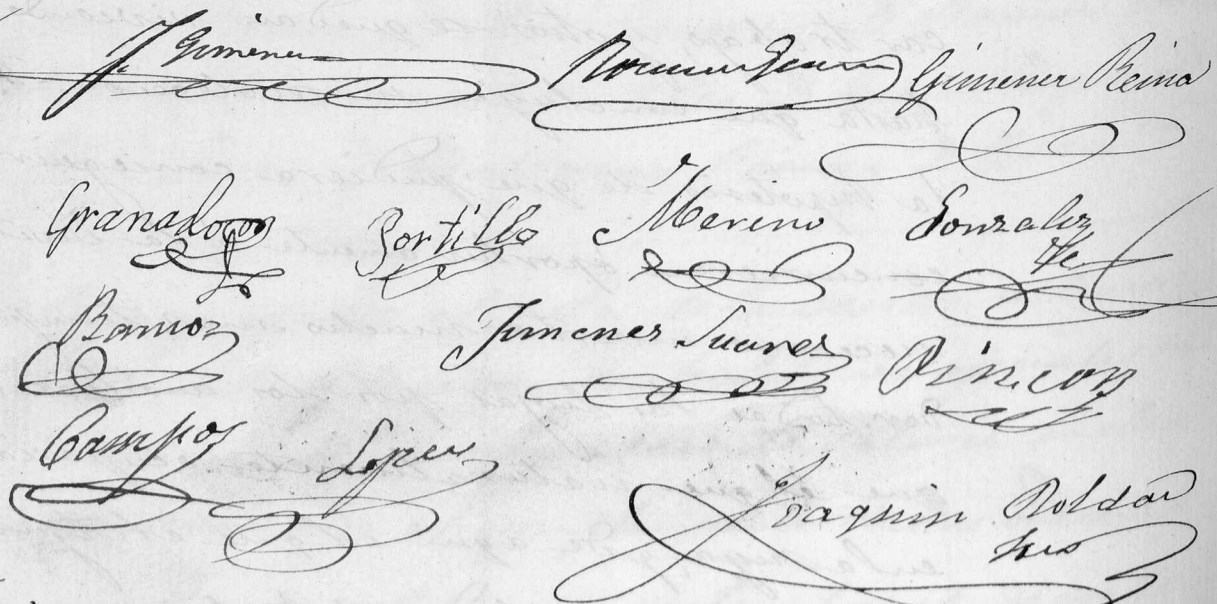 J. Gimenez Gimenez Reina
Granados Portillo Merino Gonzalez
Ramos Jimenez Suarez Rincon
Campos Lopez
Joaquin Roldan